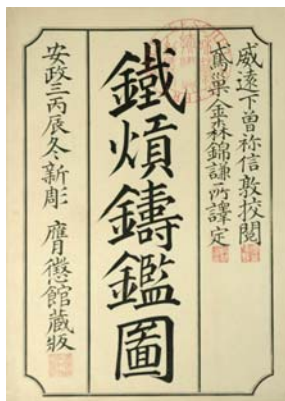 威遠下曽祢信敦挍閲
鳶巣金森錦謙所譯定
鐵熕鑄鑑圖
安政三丙辰冬新彫　膺懲館藏版